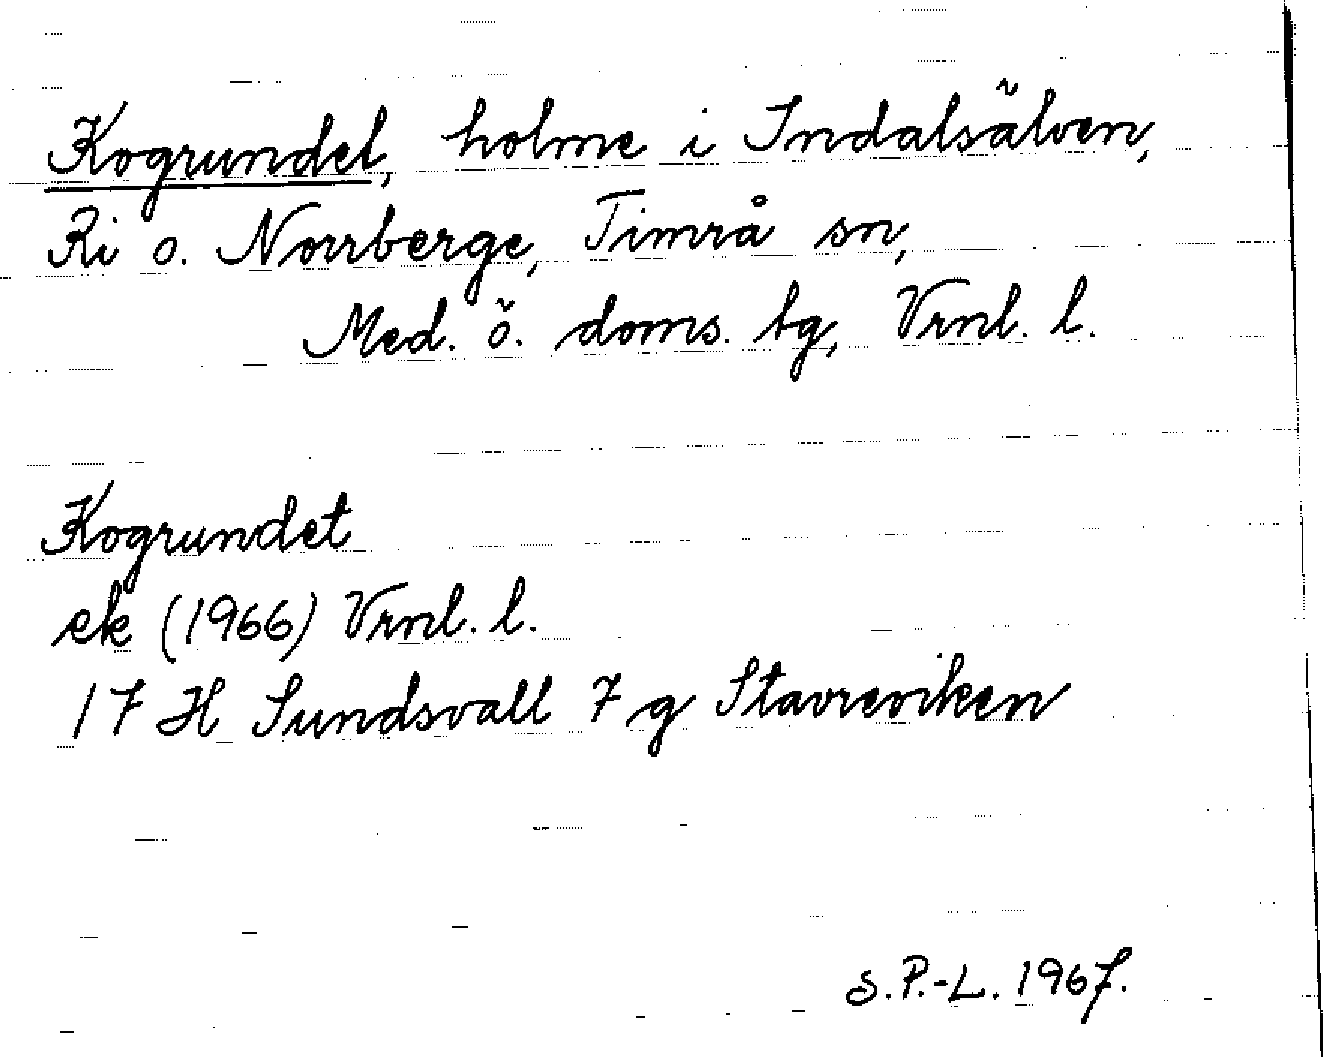 Kogrundet, holme i Indalsälven,
Ri o. Norrberge, Timrå sn,
Med. ö. doms. tg, Vrnl. l.
Kogrundet
ek (1966) Vrnl. l.
17 H Sundsvall 7 g Stavreviken
S.P.-L. 1967.